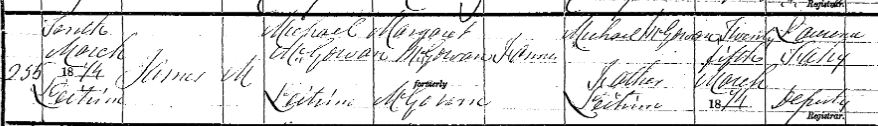 Registrar.
255
Tenth
March
1874
Leitrim
James
M
Michael
McGowan
Leitrim
Margaret
McGowan
formerly
McGovern
Farmer
Michael McGowan
Father
Leitrim
Twenty
fifth
March
1874
Deputy
Registrar.